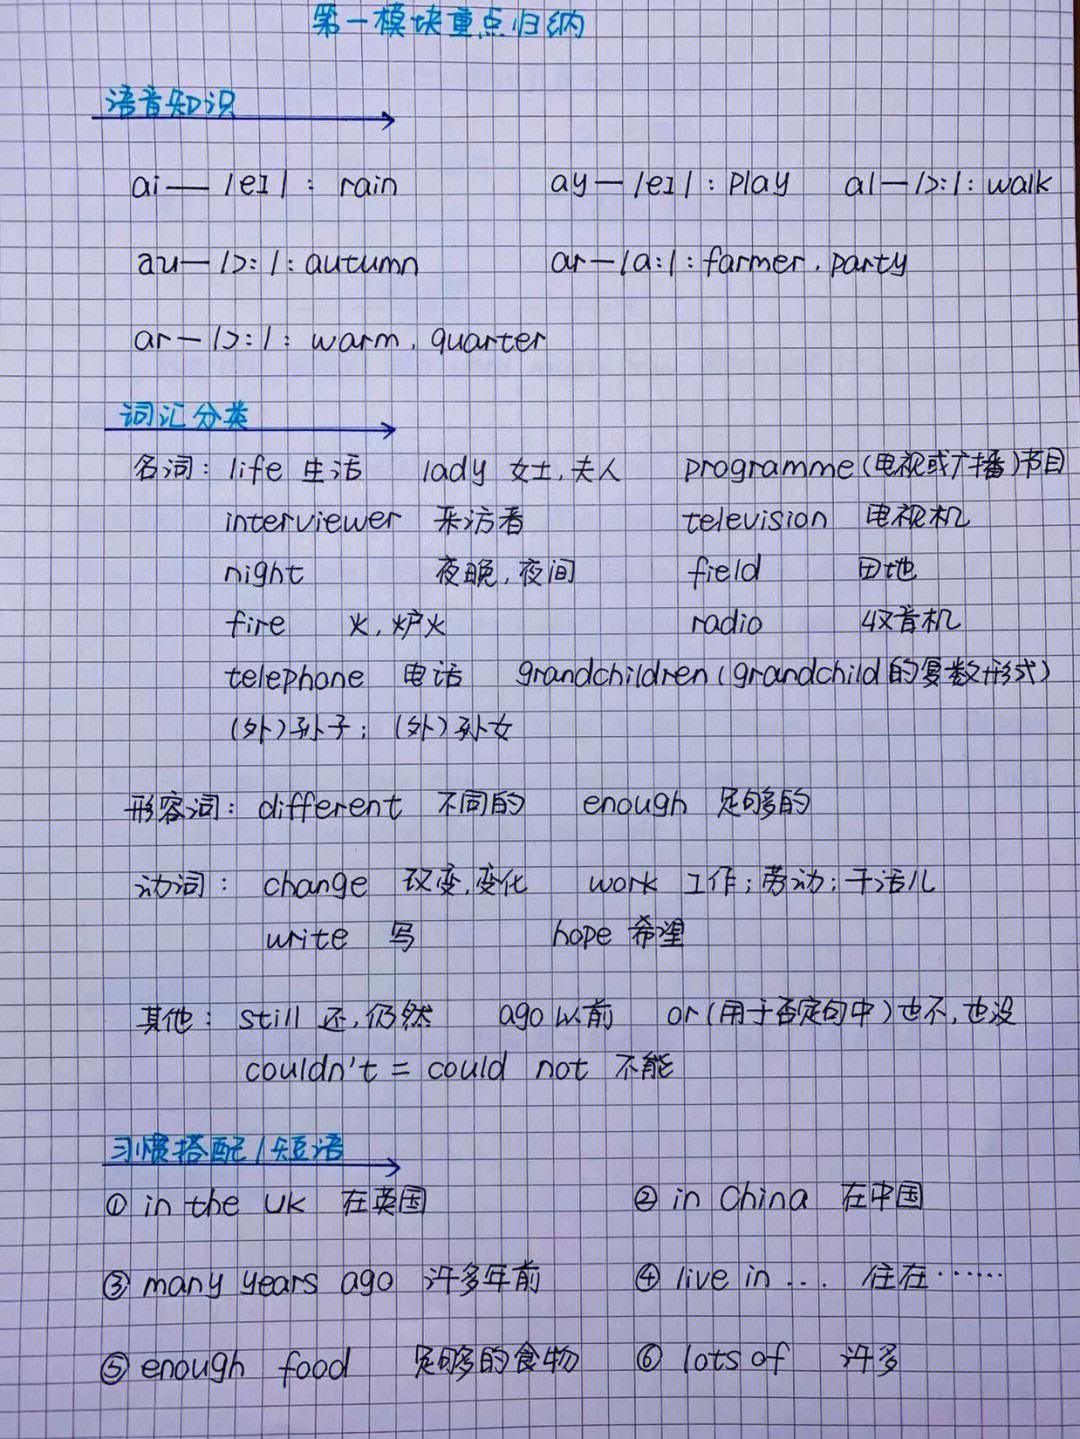 第一模块重点归纳
语音知识
ai—/eɪ/: rain ay—/eɪ/: play al—/ɔ:/: walk
au—/ɔ:/: autumn ar—/a:/: farmer, party
ar—/ɔ:/: warm, quarter
词汇分类
名词: life 生活 lady 女士,夫人 programme(电视或广播)节目
interviewer 采访者 television 电视机
night 夜晚,夜间 field 田地
fire 火,炉火 radio 收音机
telephone 电话 grandchildren(grandchild的复数形式)
(外)孙子;(外)孙女
形容词: different 不同的 enough 足够多的
动词: change 改变,变化 work 工作;劳动;干活儿
write 写 hope 希望
其他: still 还,仍然 ago 以前 or(用于否定句中)也不,也没
couldn't = could not 不能
习惯搭配/短语
① in the UK 在英国 ② in China 在中国
③ many years ago 许多年前 ④ live in ... 住在……
⑤ enough food 足够多的食物 ⑥ lots of 许多